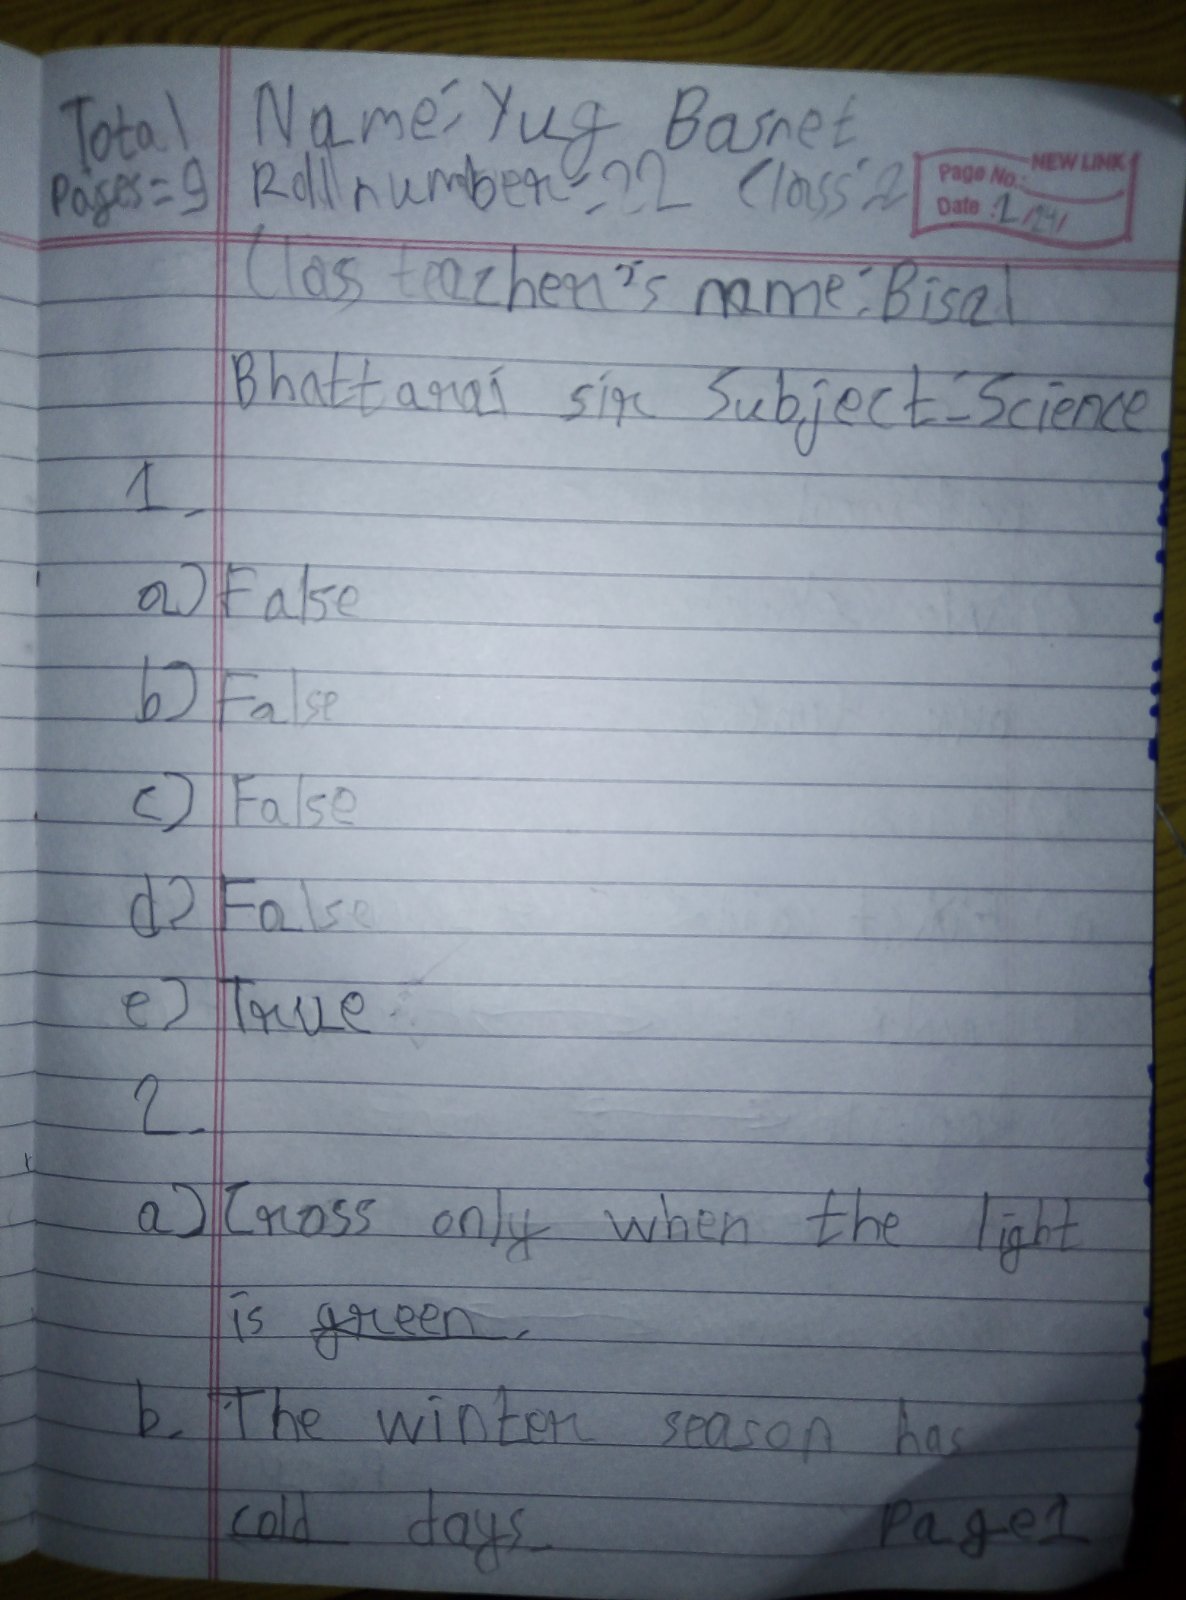 Total
Pages=9
Name: Yug Basnet
Roll number=22 Class:2
NEW LINK
Page No.:
Date :
Clas teacher's name: Bisal
Bhattarai sir Subject:Science
1.
a) False
b) False
c) False
d) False
e) True
2.
a) Cross only when the light
is green.
b. The winter season has
cold days.
Page1